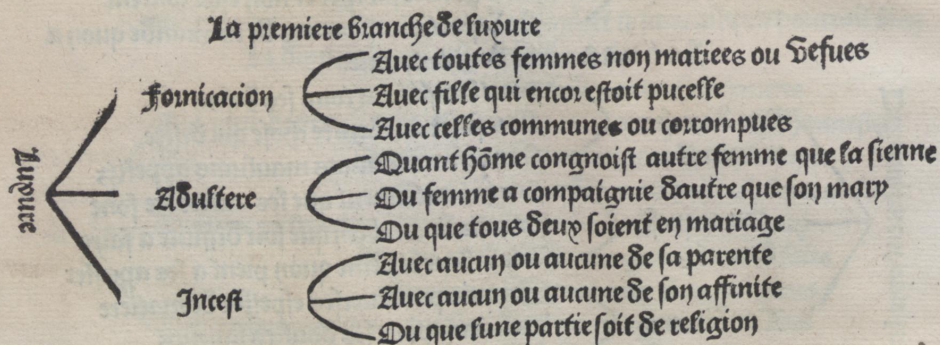 La premiere branche de luxure
Luxure
Fornicacion
Avec toutes femmes non mariees ou vefues
Avec fille qui encor estoit pucelle
Avec celles communes ou corrompues
Adultere
Quant hōme congnoist autre femme que la sienne
Ou femme a compaignie dautre que son mary
Ou que tous deux soient en mariage
Incest
Avec aucun ou aucune de sa parente
Avec aucun ou aucune de son affinite
Ou que lune partie soit de religion